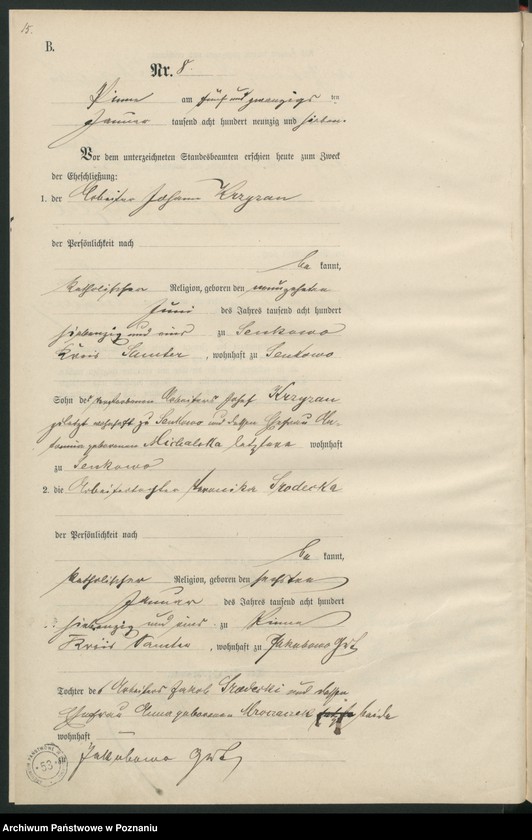 15.
B.
Nr. 8.
Pinne am fünf und zwanzigsten
Januar tausend acht hundert neunzig und sieben.
Vor dem unterzeichneten Standesbeamten erschien heute zum Zweck
der Eheschließung:
1. der Arbeiter Johann Krzyzan
der Persönlichkeit nach
be kannt,
katholischer Religion, geboren den neunzehnten
Juni des Jahres tausend acht hundert
siebenzig und eins zu Senkowo
Kreis Samter, wohnhaft zu Senkowo
Sohn des verstorbenen Arbeiters Josef Krzyzan
zuletzt wohnhaft zu Senkowo und dessen Ehefrau An-
tonina geborenen Michalska letztere wohnhaft
zu Senkowo
2. die Arbeitertochter Veronika Srodecka
der Persönlichkeit nach
be kannt,
katholischer Religion, geboren den sechsten
Januar des Jahres tausend acht hundert
siebenzig und eins zu Pinne
Kreis Samter, wohnhaft zu Jakubowo Gut
Tochter des Arbeiters Jakob Srodecki und dessen
Ehefrau Anna geborenen beide
wohnhaft
zu Jakubowo Gut
53
Archiwum Państwowe w Poznaniu